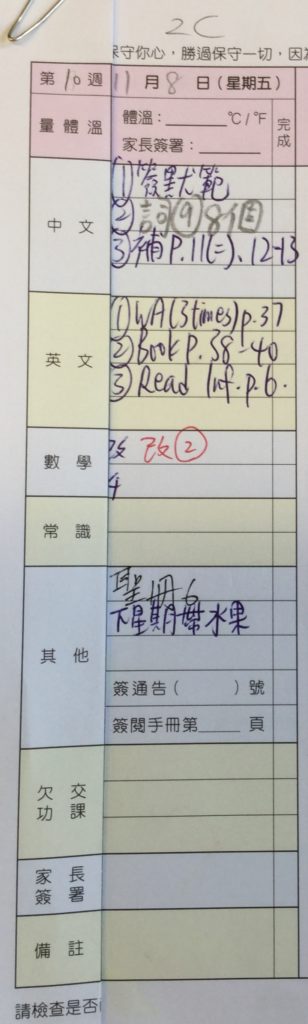 2C
保守你心，勝過保守一切，因為
第10週 11月8日(星期五) 完成
量體溫 體溫：______°C/°F
家長簽署：______
中文 ①簽默範
②詞⑨8個
③補P.11(二)、12-13
英文 ①WA(3times)p.37
②Book P.38-40
③Read Inf.p.6.
數學 改 改②
4
常識
其他 聖冊6
下星期帶水果
簽通告( )號
簽閱手冊第___頁
欠交功課
家長簽署
備註
請檢查是否